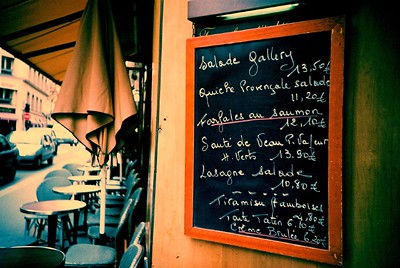 Salade Gallery
13,50€
Quiche Provençale salade
11,20€
Farfales au saumon
12,10€
Sauté de Veau P. Vapeur
H. Verts 13.90€
Lasagne salade
10,80€
Tiramisu framboises
4,80€
Tarte Tatin 6.10€
Crème Brulée 6.20€